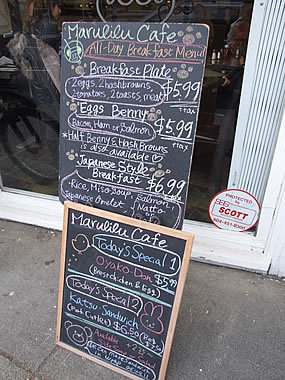 Marulilu Cafe
All-Day Breakfast Menu
Breakfast Plate
2eggs, 2hashbrowns
2tomatoes, 2toasts, meat
$5.99
+tax
Eggs Benny
Bacon, Ham or Salmon
$5.99
+tax
*Half Benny & Hash Browns
is also available
Japanese Style
Breakfast $6.99
+tax
Rice, Miso Soup
Japanese Omelet
Salmon
Natto
or
Marulilu Cafe
Today's Special 1
Oyako-Don
$5.99
Today's Special 2
Katsu-Sandwich
(Pork Cutlet) $6.50
Available
PROTECTED BY
SCOTT
604-451-9300